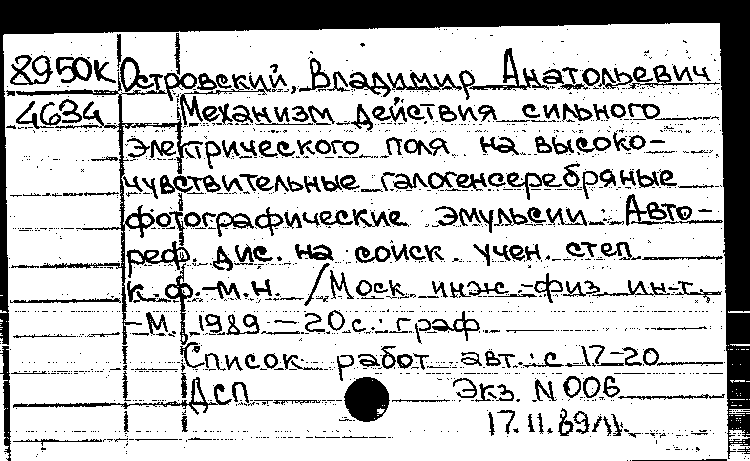 8950к Островский, Владимир Анатольевич
4634 Механизм действия сильного
электрического поля на высоко-
чувствительные галогенсеребряные
фотографические эмульсии: Авто-
реф. дис. на соиск. учен. степ
к.ф.-м.н. / Моск инж.-физ ин-т.
-М., 1989 -20с.: граф
Список работ авт.: с. 17-20
ДСП Экз. N 006
17.11.89